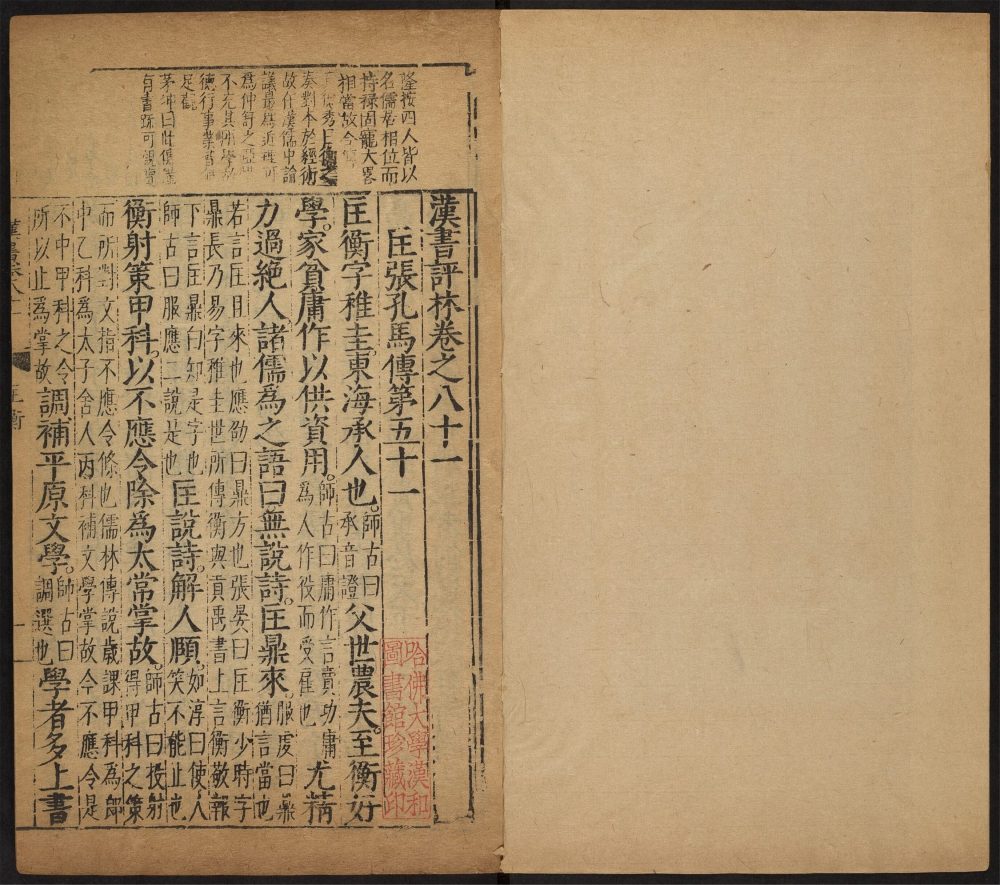 隆按四人皆以
名儒居相位而
持祿固寵大畧
相當故今
奏對本於經術
故在漢儒中論
議最爲近理可
爲仲舒之亞
不充其所學
德行事業
足觀
茅坤曰
有書疏可觀覽
漢書評林卷之八十一
匡張孔馬傳第五十一
匡衡字稚圭東海承人也師古曰承音證父世農夫至衡好
學家貧庸作以供資用師古曰庸作言賣功庸爲人作役而受雇也尤精
力過絶人諸儒爲之語曰無說詩匡鼎來服虔曰鼎猶言當也
若言匡且來也應劭曰鼎方也張晏曰匡衡少時字
鼎長乃易字稚圭世所傳衡與貢禹書上言衡敬報
下言匡鼎白知是字也
師古曰服應二說是也匡說詩解人頤如淳曰使人笑不能止也
衡射策甲科以不應令除爲太常掌故師古曰投射得甲科之策
而所對文指不應令條也儒林傳說歲課甲科爲郎
中乙科爲太子舍人丙科補文學掌故今不應令是
不中甲科之令
所以止爲掌故調補平原文學師古曰調選也學者多上書
漢書卷八十一
匡衡
一
哈佛大學漢和
圖書館珍藏印